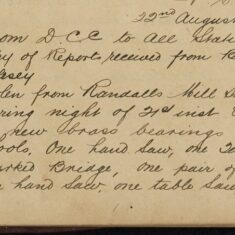 22nd August
from D.C.C to All Stati
y of Reports received from R
asey
len from Randalls Mill S
ring night of 21st inst
new brass bearings
ools. One hand saw, one
arked Bridge, one pair of
hand saw, one table Saw